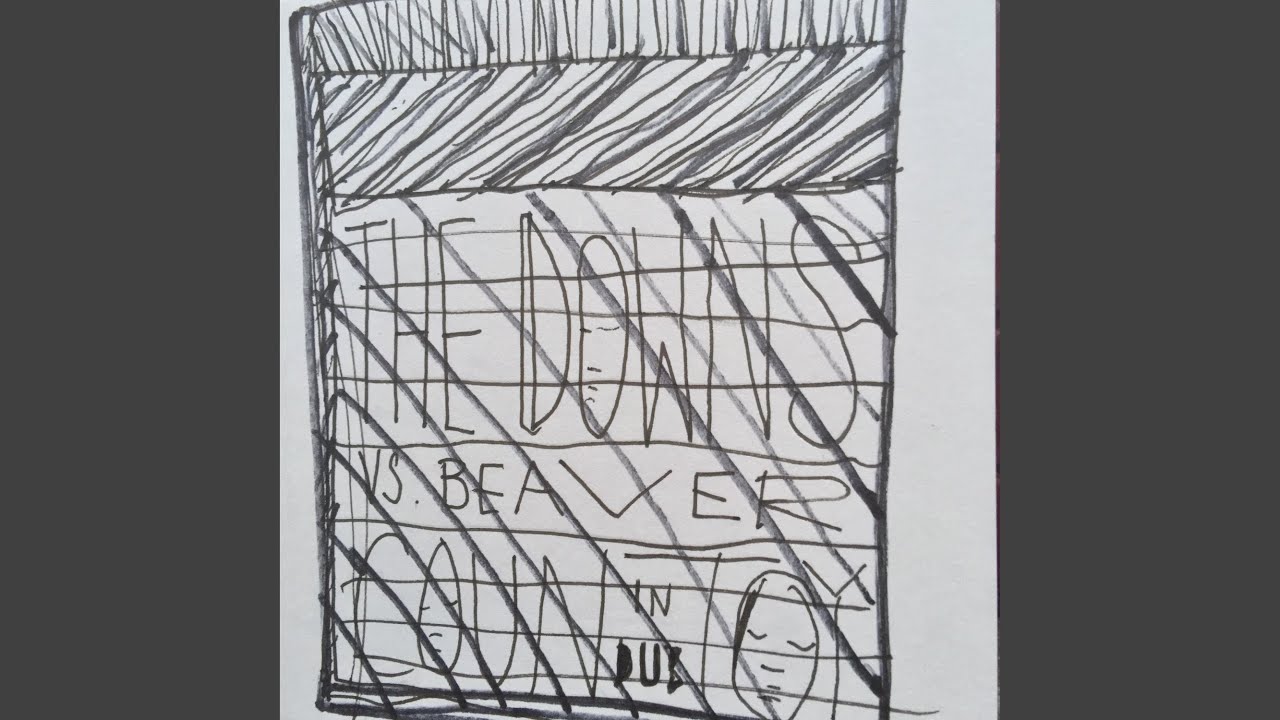 THE DOWNS
VS. BEAVER
COUNTY
IN
DUB